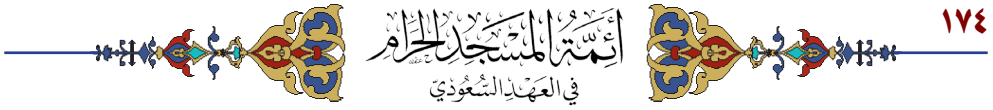 ١٧٤
أَئِمَّةُ المَسْجِدِ الحَرَامِ
في العَهْدِ السُّعُوديّ